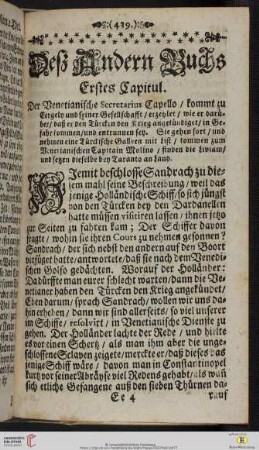 (439.)
Deß Andern Buchs
Erstes Capitul.
Der Venetianische Secretarius Capello / kommt zu
Ergely und seiner Gesellschafft / erzehlet / wie er darü-
ber / daß er den Türcken den Krieg angekündiget / in Ge-
fahr kommen / und entrunnen sey. Sie gehen fort / und
nehmen eine Türckische Galleen mit list / kommen zum
Venetianischen Capitain Molino / finden die Livian/
und setzen dieselbe bey Taranto an Land.
HJemit beschlosse Sandrach zu die-
sem mahl seine Beschreibung / weil das
jenige Holländische Schiff / so sich jüngst
von den Türcken bey den Dardanellen
hatte müssen visitiren lassen / ihnen jetzo
zur Seiten zu fahren kam; Der Schiffer davon
fragte / wohin sie ihren Cours zu nehmen gesonnen?
Sandrach / der sich nebst den andern auf den Boort
verfüget hatte / antwortete / daß sie nach dem Venedi-
schen Golfo gedächten. Worauf der Holländer:
Da dürffte man eurer schlecht warten / dann die Ve-
netianer haben den Türcken den Krieg angekündet/
Eben darum / sprach Sandrach / wollen wir uns da-
hin erheben / dann wir sind allerseits / so viel unserer
im Schiffe / resolvirt / in Venetianische Dienste zu
gehen. Der Holländer lachte der Rede / und hielte
es vor einen Schertz / als man ihm aber die unge-
schlossene Sclaven zeigete / merckte er / daß dieses das
jenige Schiff wäre / davon man in Constantinopel
kurtz vor seiner Abräyse viel Redens gehabt / als wañ
sich etliche Gefangene auf den sieben Thürnen da-
Ee 4
rauf